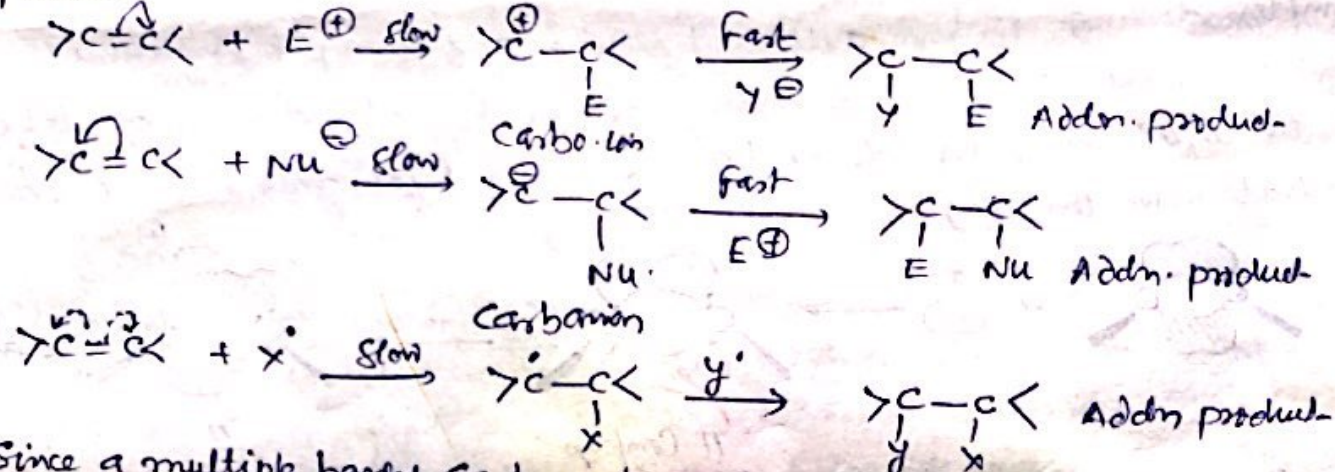 >C=C< + E⊕ slow → >C⊕—C< Fast → >C—C<
E Y⊖ Y E Addn. product
Carbo.ion
>C=C< + Nu⊖ slow → >C⊖—C< Fast → >C—C<
Nu. E⊕ E Nu Addn. product
Carbanion
>C=C< + X• slow → >C•—C< y• → >C—C< Addn product
X y X
Since a multiple